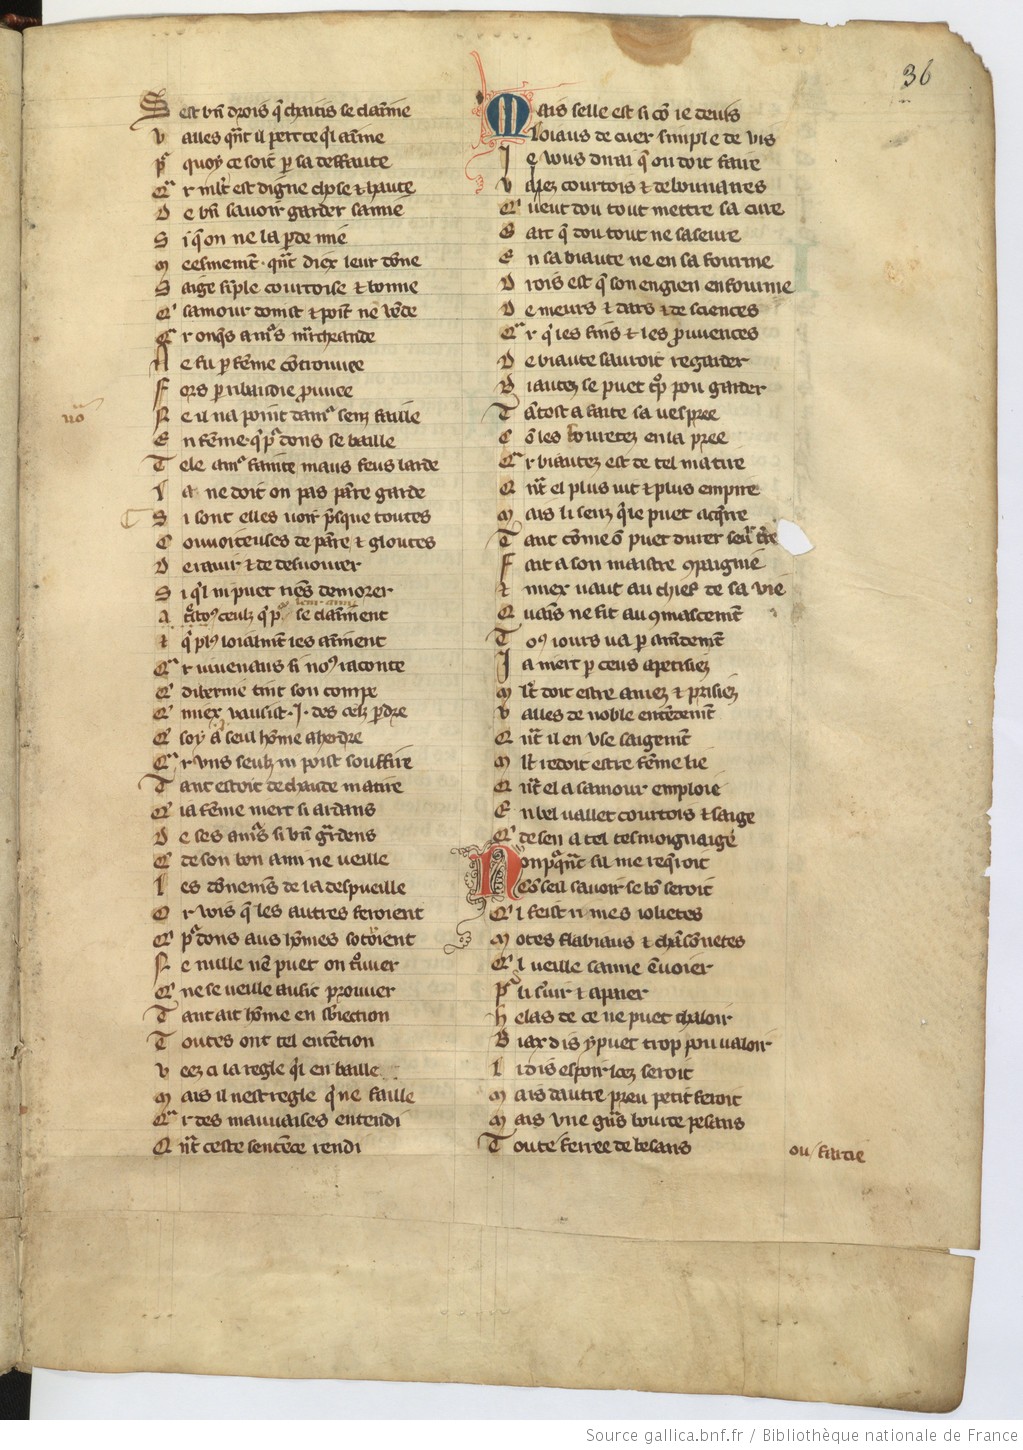 36
S est bn̄ drois q̄ chaitis se claī̄me
v alles qn̄t il pert ce q'l aī̄me
pͬ quoy ce soit ꝑ sa deffaute
Cͬ r ml't est digne chose & haute
D e bn̄ savoir garder samie
S i q̄ on ne la ꝑde mie
m eesmement qn̄t diex leur dōne
S aige sīple courtoise & bonne
Q' samour doinst & point ne vēde
C r onq̄s amͬs mͬcheande
N e fu ꝑ fēme cōtrouvee
F ors ꝑ ribaudie prouvee
N e il na point damͬ senz faille
E n fēme q' pͬ dons se baille
T ele amͬ fainte maus feus larde
l a ne doit on pas pͬre garde
S i sont elles voir pͬsque toutes
C ouvoiteuses de pͬre & gloutes
D e ravir & de devourer
S i q'l ni puet riēs demorer
A
& q' plꝰ loialmēt les aī̄ment
Cͬ r iuvenaus si noꝰ raconte
Q' diberine tint son compe
Q' miex vausist .I. des celz ꝑdre
Q' soy a seul hōme aherdre
Cͬ r vns seulz ni poist souffire
T ant estoit de chaude matire
Q' ia fēme niert si ardans
D e ses amͬs si bn̄ gͬdens
Q' de son bon ami ne veille
l es dōnemēs de la despueille
O r vois q̄ les autres feroient
Q' pͬ dons aus hōmes sotroient
N e nulle nē puet on tͦuver
Q' ne se veille ausic prouver
T ant ait hōme en sbiection
T outes ont tel entētion
v eez ci la regle q'l en baille
m ais il nest regle q' ne faille
Cͬ r des mauvaises entendi
Q n̄t ceste sentēce rendi
M ais selle est si cō ie devis
l oiaus de cuer simple de vis
J e vous dirai q̄ on doit faire
v alez courtois & debounaires
Q' veut dou tout mettre sa cure
G art q̄ dou tout ne saseure
E n sa biaute ne en sa fourme
D rois est q̄ son engien enfourme
D e meurs & dars & de sciences
Cͬ r q' les fins & les prouvences
D e biaute sauroit regarder
B iautez se puet tͬp pou garder
T ātost a faite sa vespree
C ō les flouretez en la pree
Cͬ r biautez est de tel matire
Q n̄t el plus vit & plus empire
m ais li senz q' le puet acq̄rre
T ant cōme ō puet durer seuͬ tͬre
F ait a son maistre ꝯpaignie
& miex vaut au chief de sa vie
Q vains ne fit au ꝯmascement
T oꝰ iours va ꝑ amēdemēt
J a niert ꝑ ceus apetisiez
m l't doit estre amez & prisiez
v alles de noble entēdemēt
Q n̄t il en vse saigemēt
m l't redoit estre fēme lie
Q n̄t el a samour emploie
E n bel vallet courtois & saige
Q' de sen a tel tesmoignaige
N onpͬqn̄t sil me req̄roit
C ōseil savoir se bō seroit
Q' l feist rimes iolietes
m otes flabiaus & chāsōnetes
Q' l veille samie ēvoier
pͬ li s'vir & apaier
h elas de ce ne puet chaloir
B iax dis y puet trop pou valoir
l i dis espoir loez seroit
m ais dautre preu petit feroit
m ais vne gnͬs bourde pesans
T oute ferree de besans
ou / farcie
Source gallica.bnf.fr / Bibliothèque nationale de France